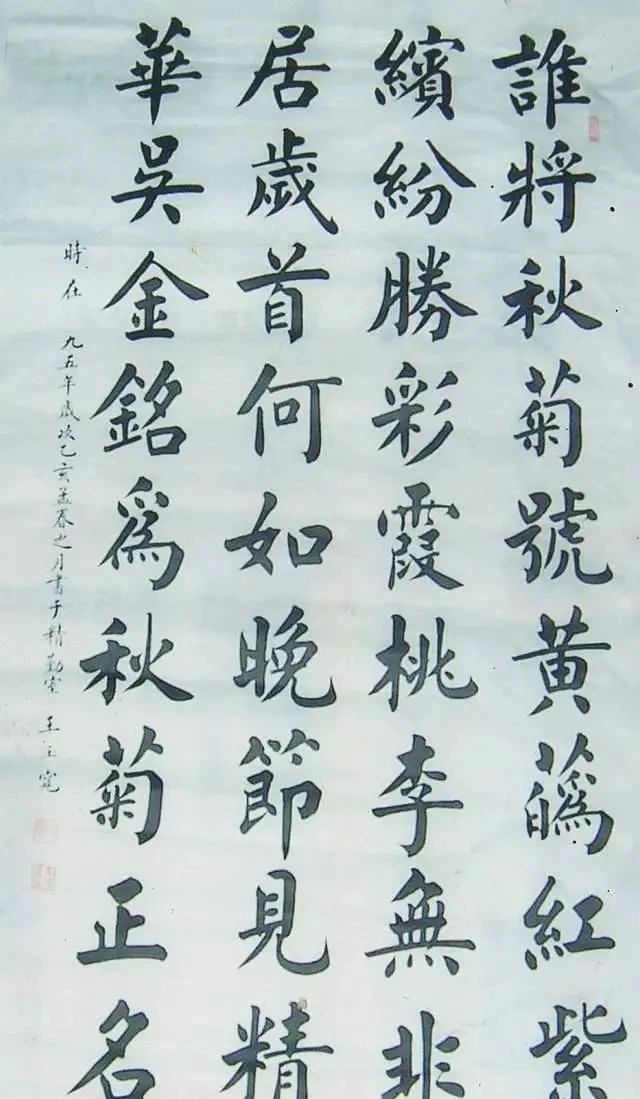 誰將秋菊號黄蘤紅紫
繽紛勝彩霞桃李無非
居歲首何如晚節見精
華吳金銘為秋菊正名
時在 九五年歲次乙亥孟春之月書于精勤室 王